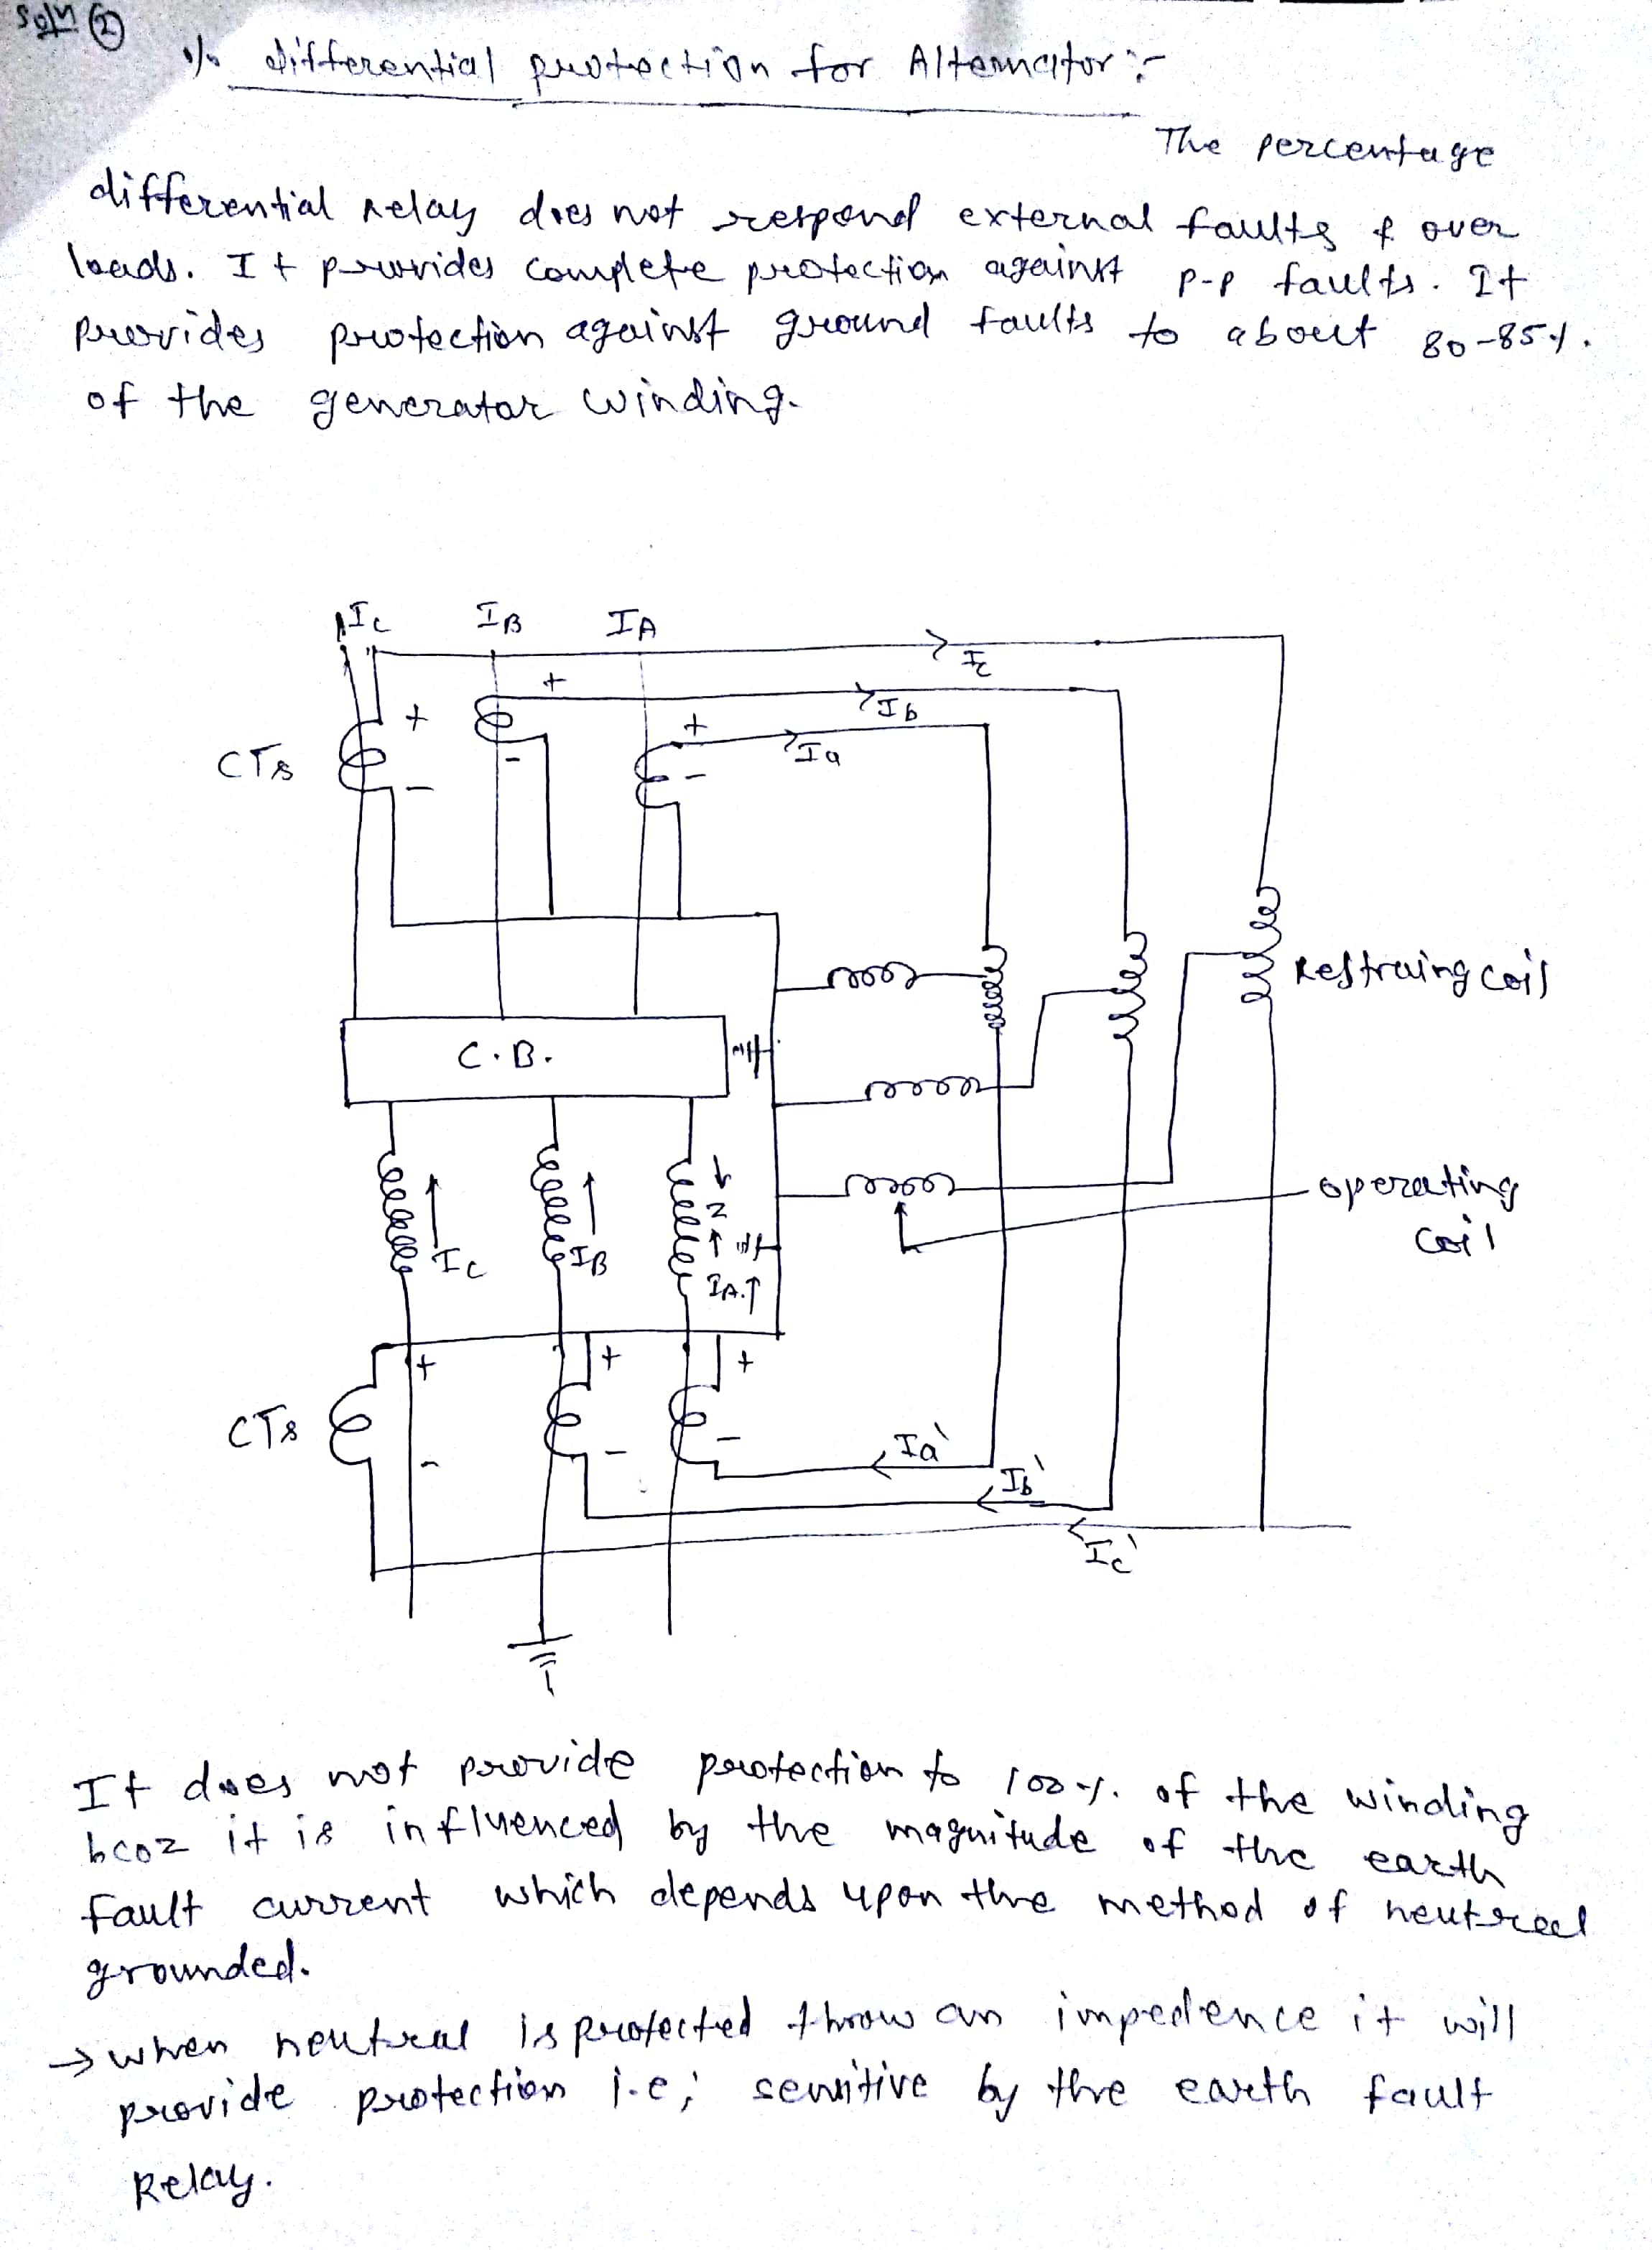 Soln ②
% differential protection for Alternator :-
The percentage
differential relay does not respond external faults & over
loads. It provides complete protection against p-p faults. It
provides protection against ground faults to about 80-85%.
of the generator winding.
IC IB IA
Ic
+
Ib
+ +
Ia
CTs
- - -
Restraing coil
C.B.
operating
coil
IC IB IA
+ + +
CTs
- - -
Ia'
Ib'
Ic'
It does not provide protection to 100%. of the winding
bcoz it is influenced by the magnitude of the earth
fault current which depends upon the method of neutral
grounded.
→ when neutral is protected throw an impedence it will
provide protection i.e; sensitive by the earth fault
Relay.